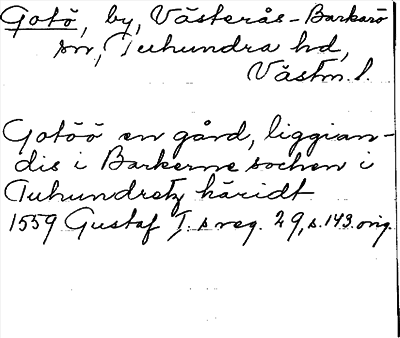 Gotö, by, Västerås-Barkarö
sn, Tuhundra hd,
Västm. l.
Gotöö en gård, liggian-
dis i Barkerne sochen i
Tuhundretz häridt
1559 Gustaf I.s reg. 29, s. 143. orig.